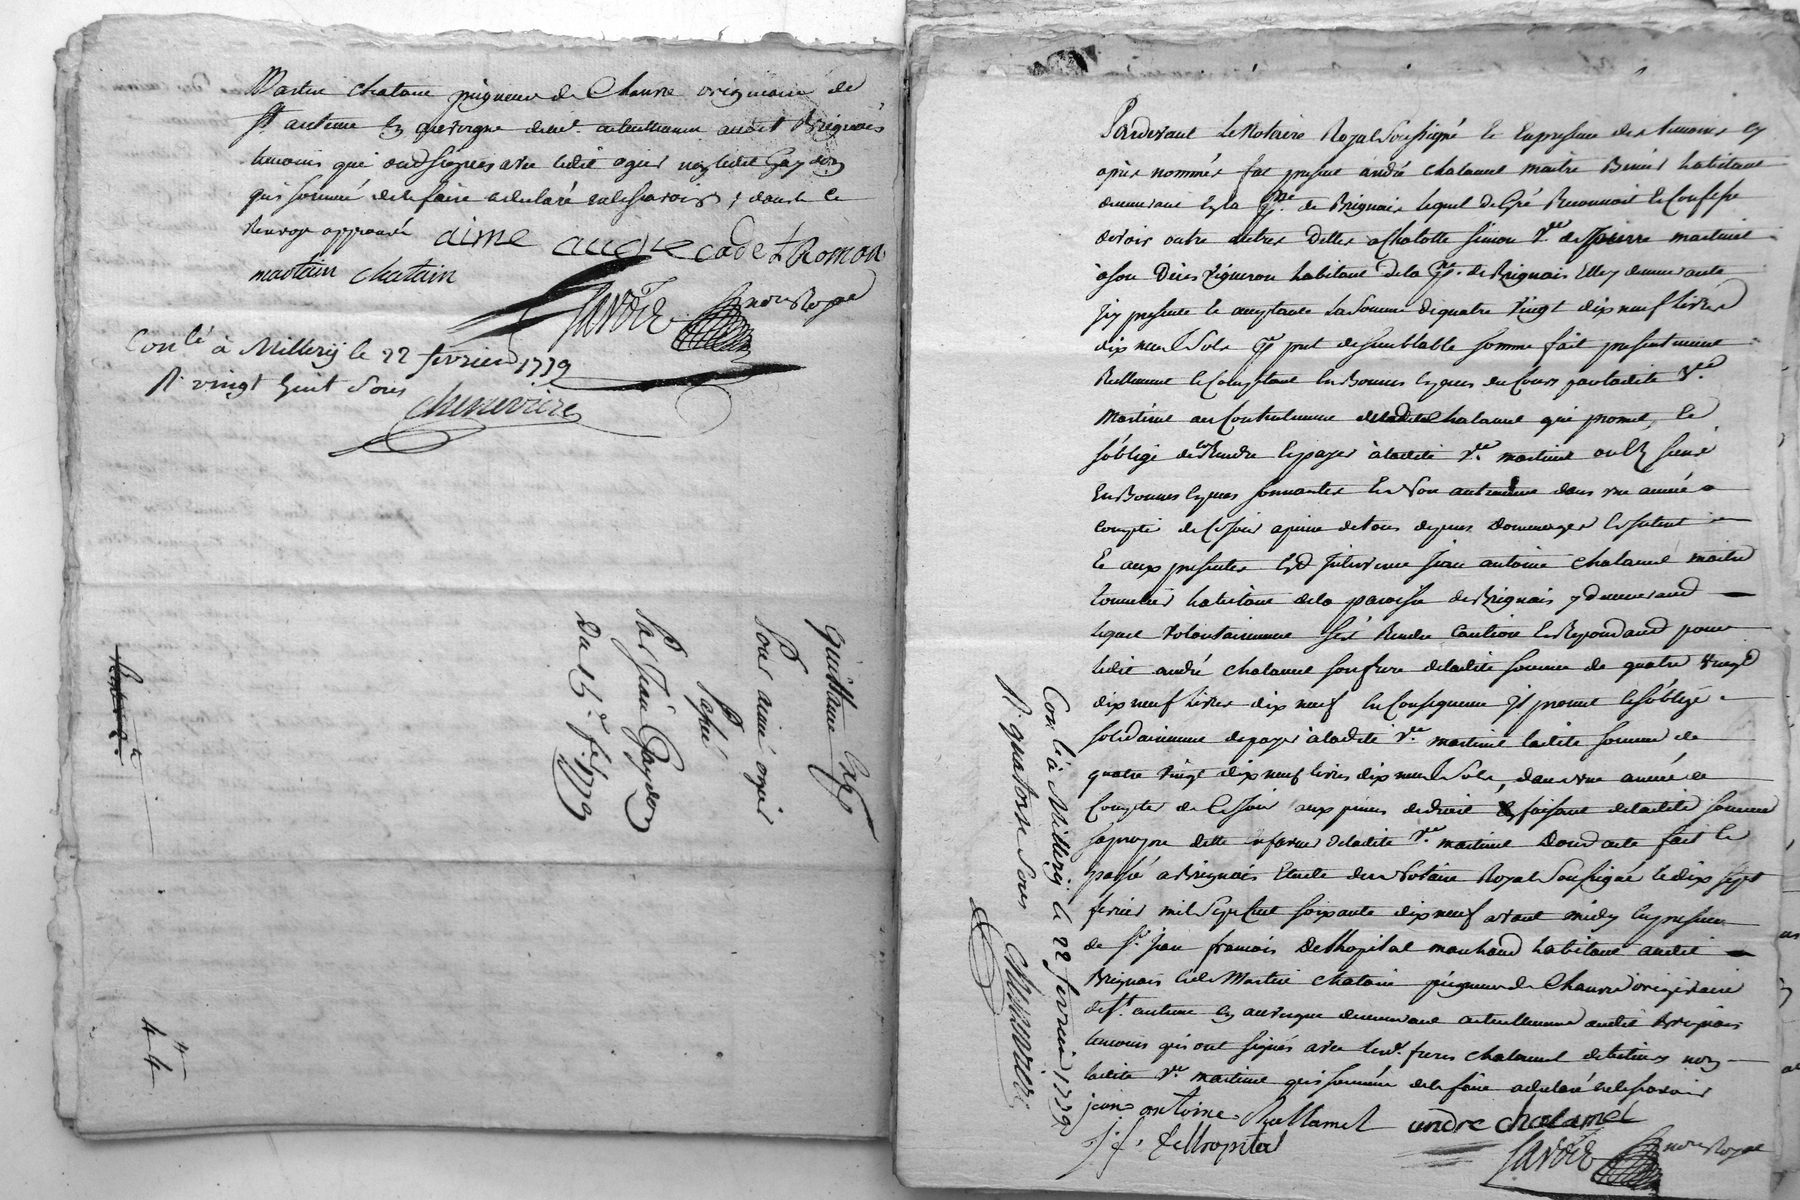 Martin chatain peigneur de Chanvre originaire de
St anteme en auvergne demt. actuellement audit Brignais
temoins qui ont signés avec ledit ogier non ledit Gaydon
qui sommé de le faire a declaré ne le savoir, dont le
Renvoy approuvé aimé cadet Romon
martain chatain
Savoie nore Royal
Conlé à Millery le 22 fevrier 1779
R. vingt huit sous
Chenevière
Quittance
Pour aimé ogier
Passé
Par Jean Gaydon
Du 15e f. 1779
44
Pardevant le Notaire Royal Soussigné et En presence des temoins cy
après nommés fut present andré chalamel maitre habitant
demeurant en la psse. de Brignais lequel de Gré Reconnoit et Confesse
devoir outre autres Dettes a Charlotte simon Ve. de pierre martinet
a son Décés vigneron habitant de la pse. de Brignais Elle y demeurante
Icy presente et acceptante la somme de quatre vingt dix neuf livres
dix neuf Sols pr. pret de semblable somme fait presentement
Reellement et Comptant En Bonnes Especes du Cours par ladite Ve.
martinet au Contentement dudit Chalamel qui promet, et
s'oblige de les Rendre et payer à ladite Ve. martinet ou aux siens
En Bonnes Especes sonnantes et Non autrement dans une année a
compter de ce jour a peine de tous depens dommages et interets
Et aux presentes Est Intervenu Jean antoine chalamel maitre
tonnelier habitant de la paroisse de Brignais y demeurand
lequel volontairement s'est Rendu Caution et Repondand pour
ledit andré chalamel son frere de ladite somme de quatre vingt
dix neuf livres dix neuf en Consequence Il promet et s'oblige
solidairement de payer à ladite Ve. martinet ladite somme de
quatre vingt dix neuf livres dix neuf Sols, dans une année a
Compter de Ce jour aux peines de droit faisant de ladite somme
sa propre dette en faveur de ladite Ve. martinet Dont acte fait et
passé a Brignais Etude du Notaire Royal Soussigné le dix sept
fevrier mil Sept Cent soixante dix neuf avant midy En presence
de Sr. Jean françois Delhopital marchand habitant audit
Brignais et de Martin chatain peigneur de Chanvre originaire
de St. anteme en auvergne demeurant actuellement audit Brignais
temoins qui ont signés avec lesd. freres chalamel debiteurs non
ladite Ve. martinet qui sommée de le faire a declaré ne le savoir
jean antoine Challamel andre chalamel
J. f. delhopital
Savoie nore Royal
Con lé à Millery le 22 fevrier 1779
R. quatorse sous Chenevière